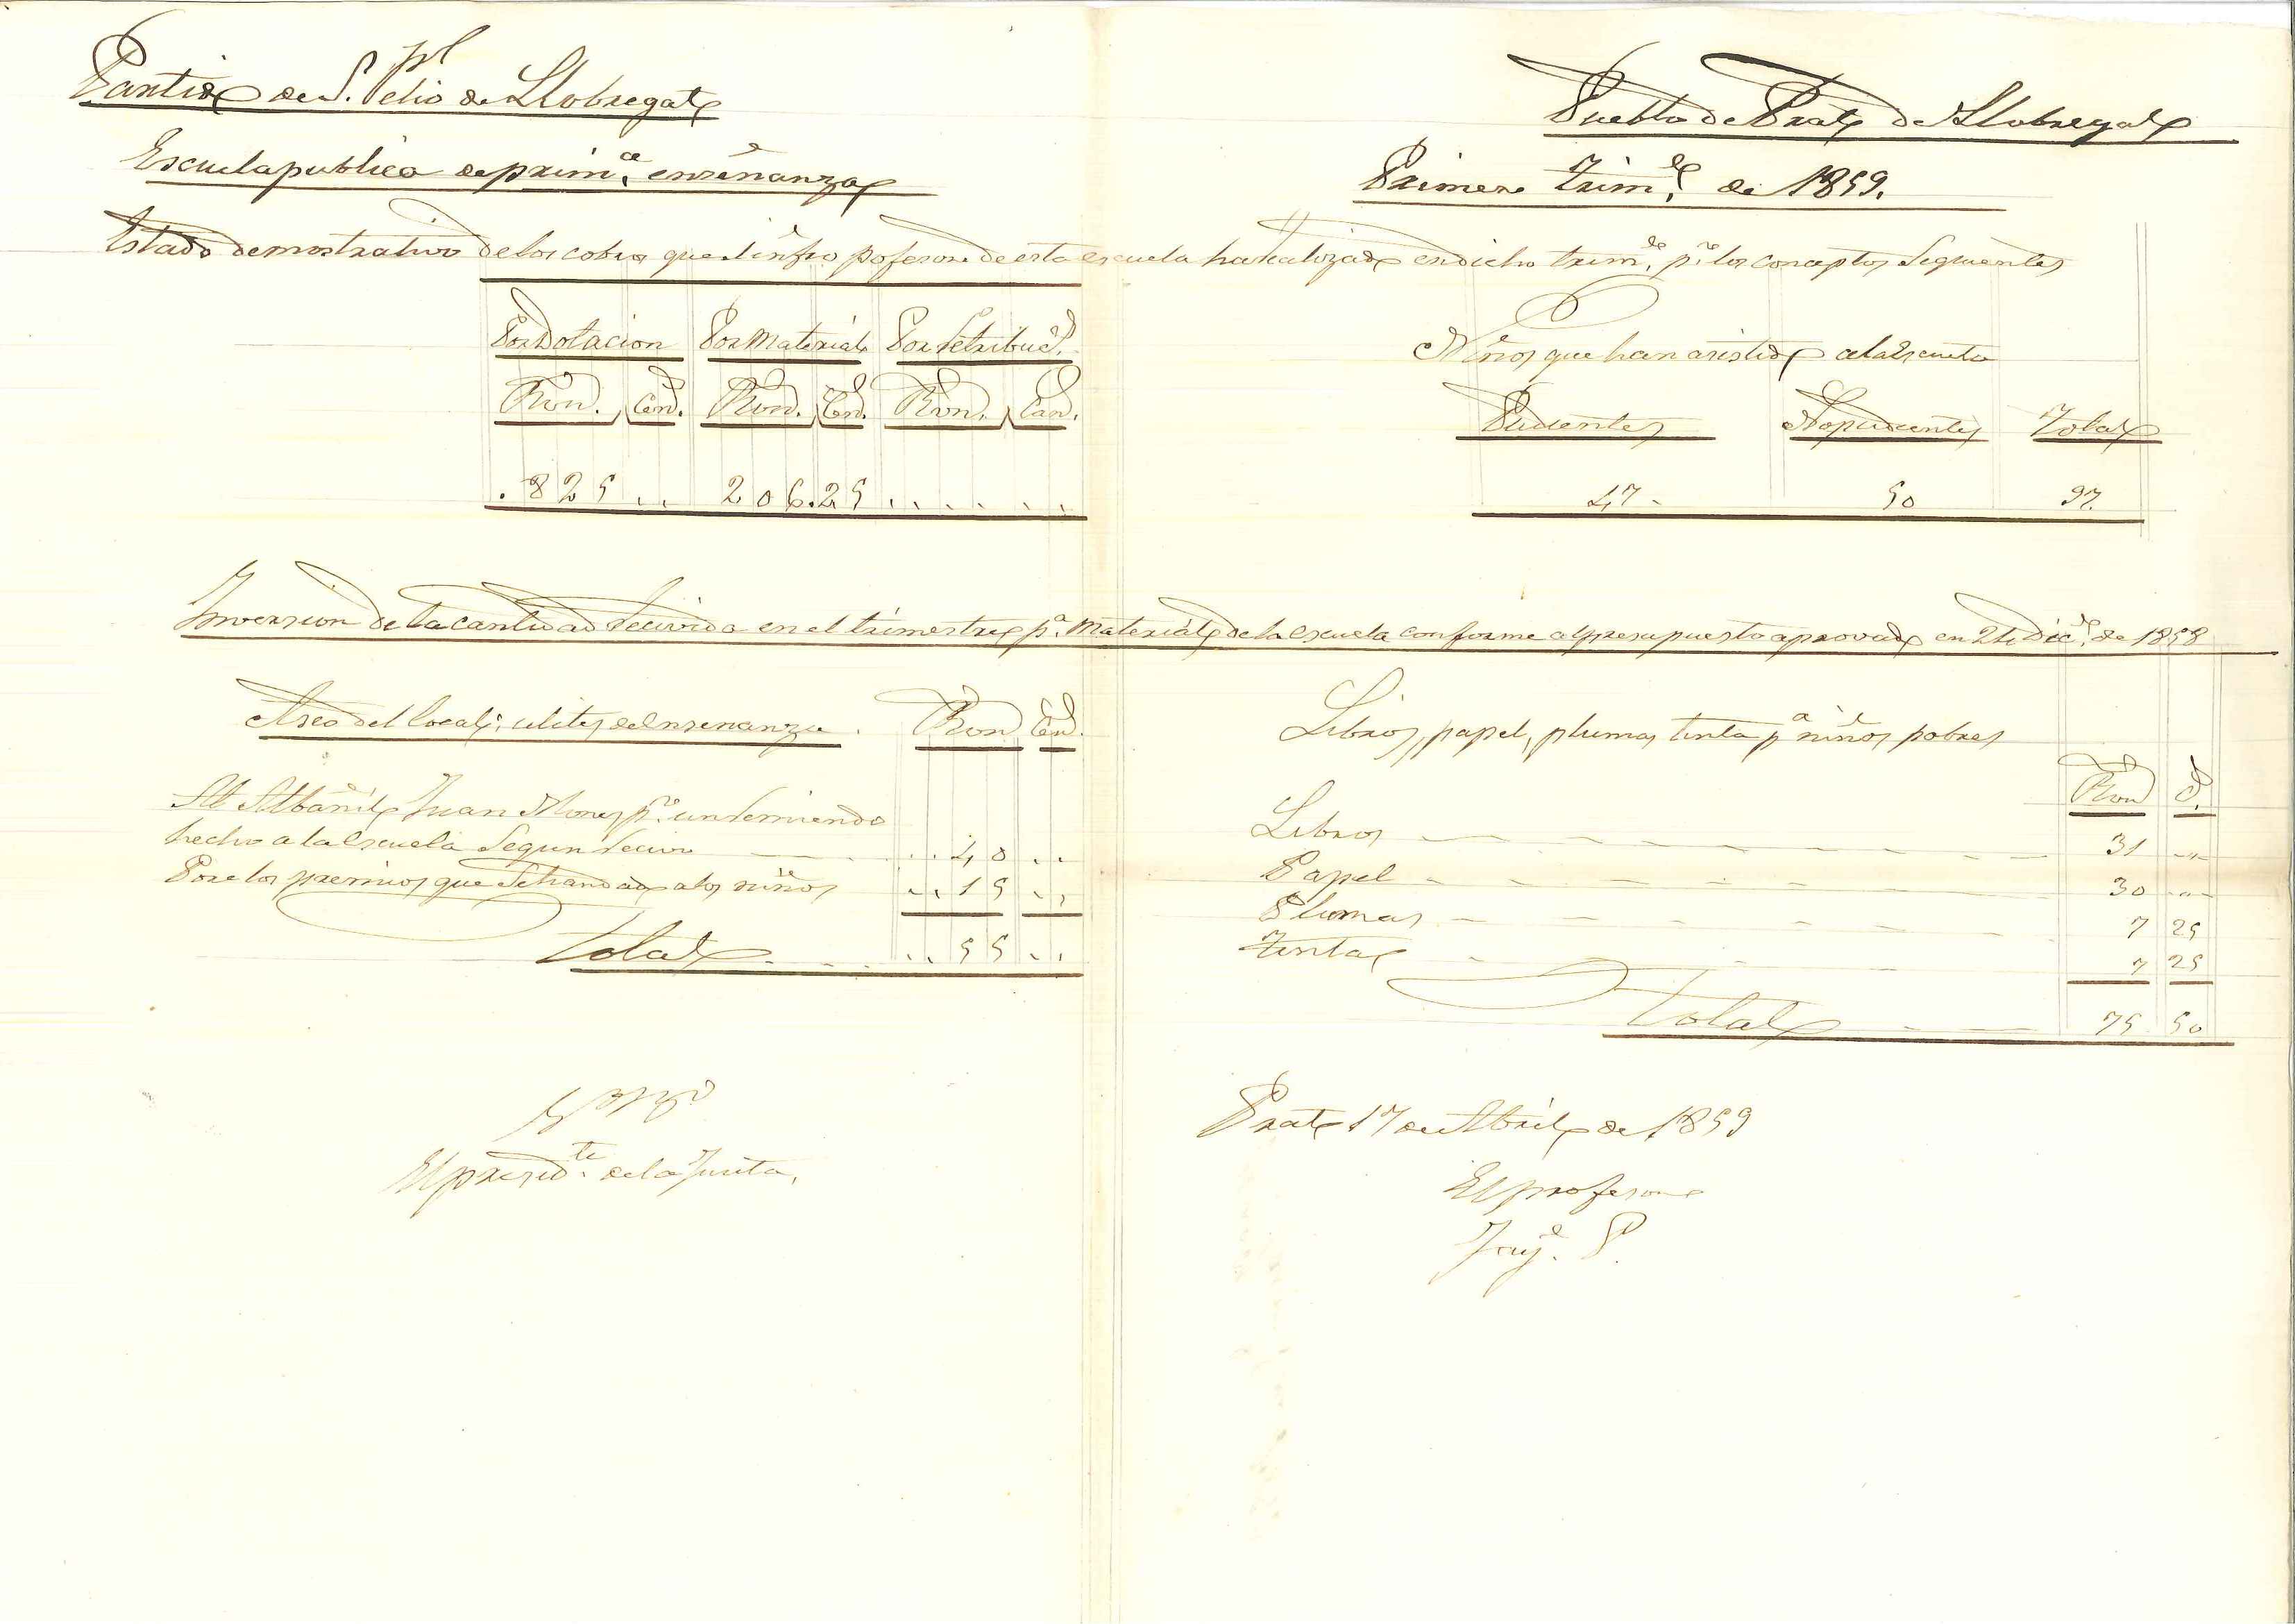 Partido de S. Felio de Llobregat
Pueblo de Prat de Llobregat
Escuela publica de prim.ª enseñanza
Primer Trim.e de 1859.
Estado demostrativo de los cobros que el infro pofesor de esta escuela ha realizado en dicho trim.e p.r los conceptos Seguientes
Por Dotacion Por Material Por Retribuc.
Rvon. Cen. Rvon. Cen. Rvon. Cen.
.825 .. 206.25 ......
Niños que han asistido a la Escuela
Pudientes No pudientes Total
47 - 50 97.
Inversion de la cantidad recivida en el trimestre p.ª Material de la escuela conforme al presupuesto aprovado en 24 Dic.e de 1858
Aseo del local i utiles de Ensenanza. Rvon Cen.
Al Albañil Juan Mones p.r un remiendo
hecho a la Escuela Segun recivo .. 40 ..
Por los premios que Se han dado a los niños .. 15 ..
Total .. 55 ..
Libros, papel, plumas tinta p.ª niños pobres
Rvon C.
Libros 31 -"-
Papel 30 -"-
Plumas 7 25
Tinta 7 25
Total 75 50
El presid.te de la Junta.
Prat 17 de Abril de 1859
El profesor